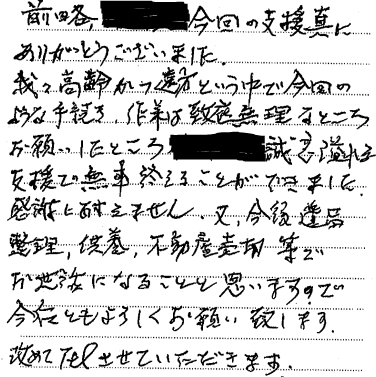 前略、今回の支援真に
ありがとうございました。
我々高齢かつ遠方という中で今回の
ような手続き、作業は到底無理なところ
お願いしたところ、誠意溢れる
支援での無事終えることができました。
感謝に耐えません。又、今後遺品
整理、供養、不動産売却等で
お世話になることと思いますので
今後ともよろしくお願い致します。
改めてTelさせていただきます。